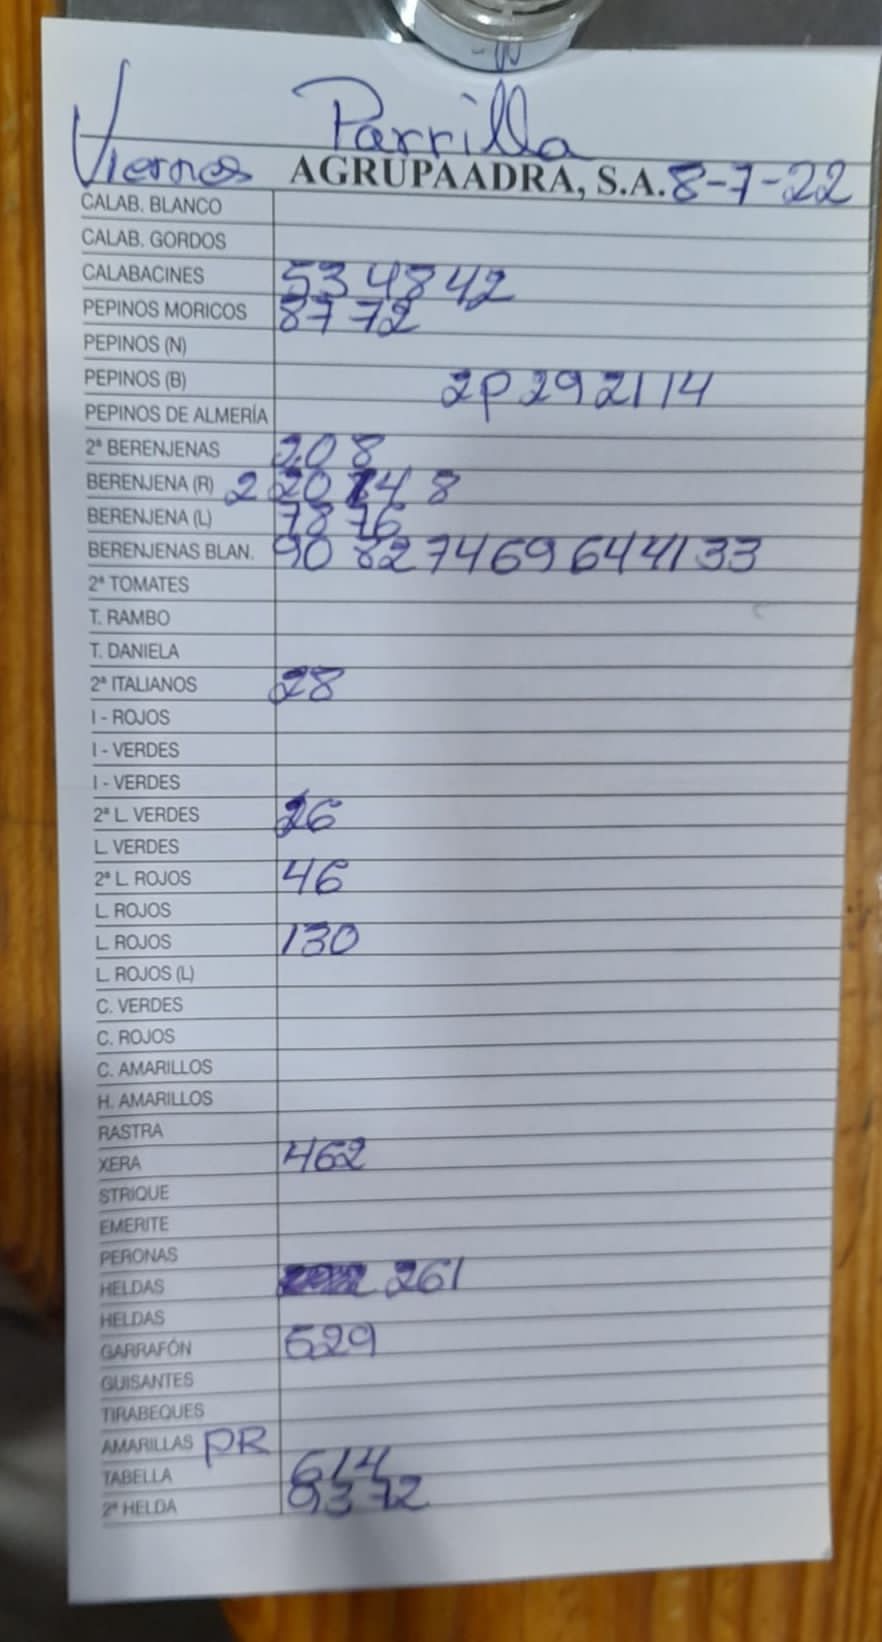 Parrilla
Viernes AGRUPAADRA, S.A. 8-7-22
CALAB. BLANCO
CALAB. GORDOS
CALABACINES 53 48 42
PEPINOS MORICOS 87 72
PEPINOS (N)
PEPINOS (B) 2P 29 21 14
PEPINOS DE ALMERÍA
2ª BERENJENAS 20 8
BERENJENA (R) 2 20 14 8
BERENJENA (L) 78 76
BERENJENAS BLAN. 90 82 74 69 64 41 33
2ª TOMATES
T. RAMBO
T. DANIELA
2ª ITALIANOS 28
I - ROJOS
I - VERDES
I - VERDES
2ª L. VERDES 26
L. VERDES
2ª L. ROJOS 46
L. ROJOS
L. ROJOS 130
L. ROJOS (L)
C. VERDES
C. ROJOS
C. AMARILLOS
H. AMARILLOS
RASTRA
XERA 462
STRIQUE
EMERITE
PERONAS
HELDAS 261
HELDAS
GARRAFÓN 529
GUISANTES
TIRABEQUES
AMARILLAS PR
TABELLA 614
2ª HELDA 93 72